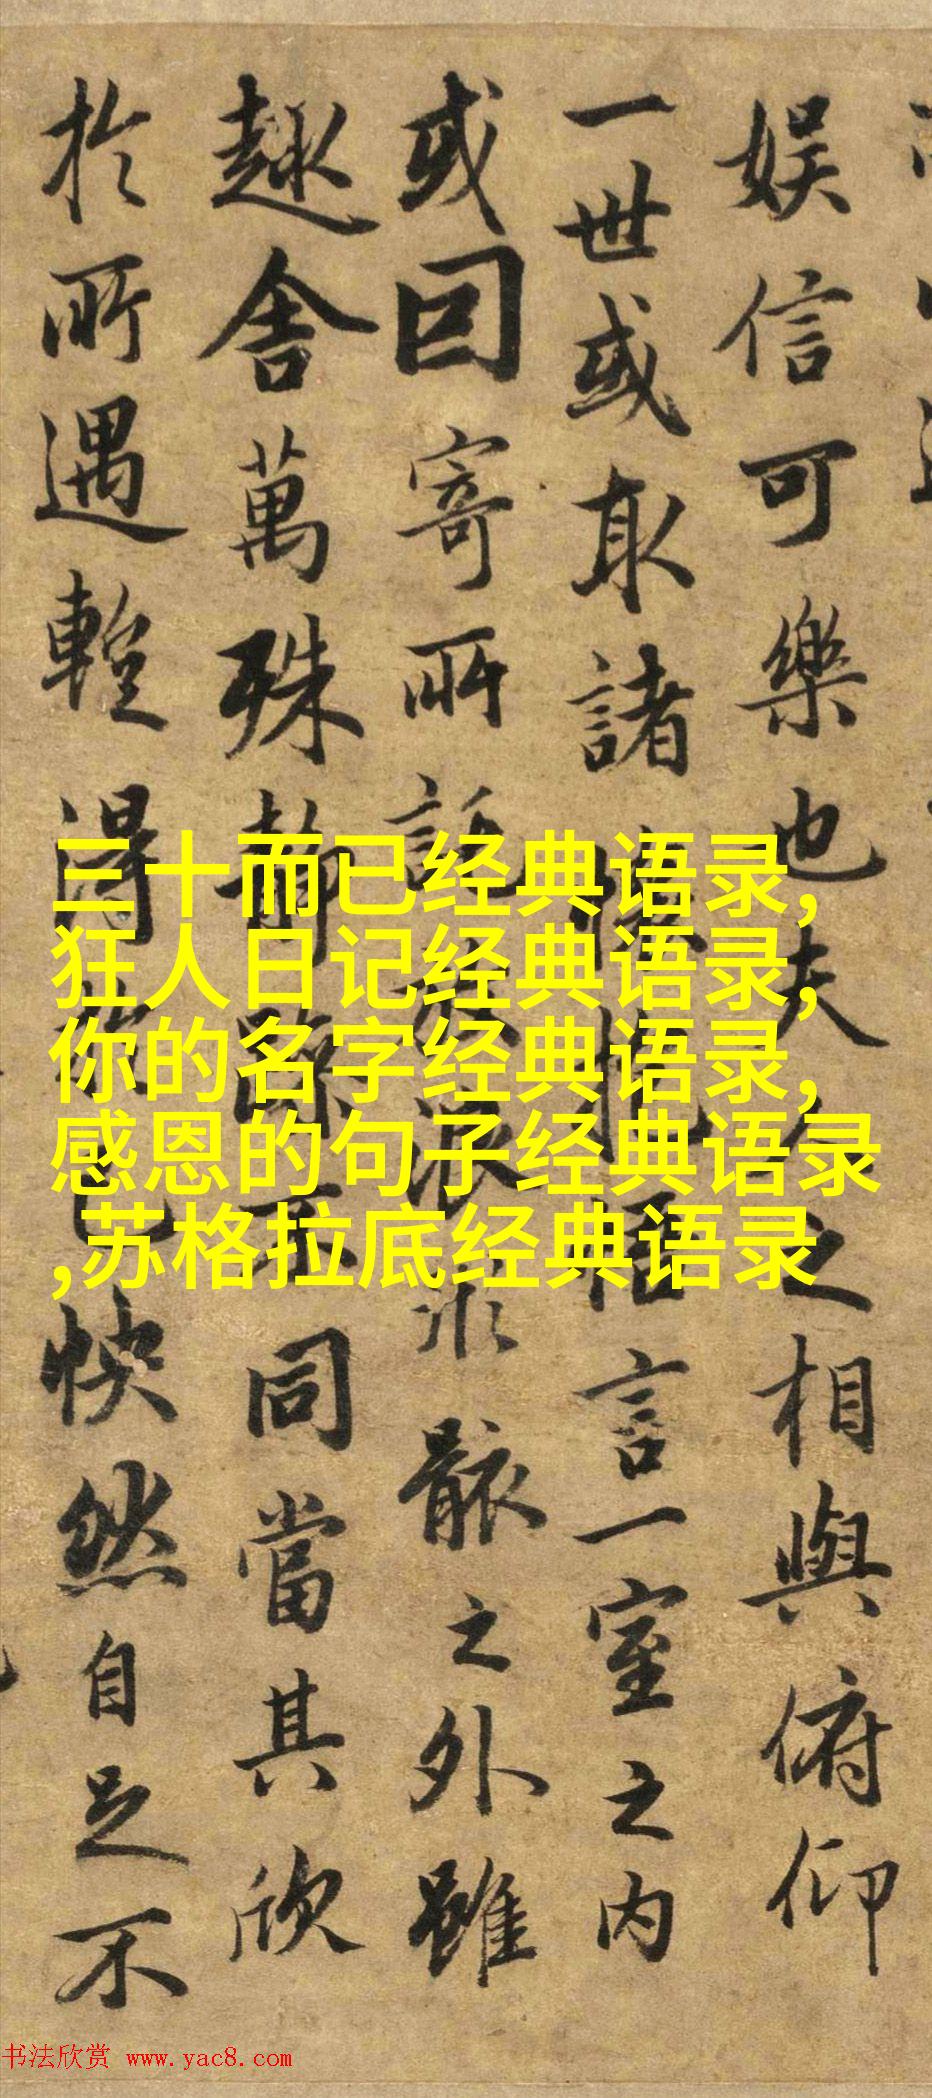 娛信可樂也夫人之相與俯仰
一世或取諸懷抱悟言一室之内
或因寄所託放浪形骸之外雖
趣舍萬殊静躁不同當其欣
於所遇暫得於己快然自足不
三十而已经典语录,
狂人日记经典语录,
你的名字经典语录,
感恩的句子经典语录
,苏格拉底经典语录
书法欣赏 www.yac8.com